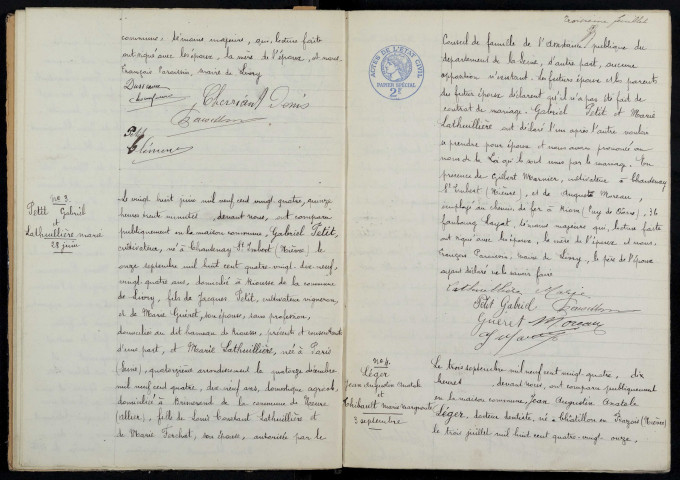 commune, témoins majeurs, qui, lecture faite
ont signé avec les époux, la mère de l'époux, et nous
François Pannerin, maire de Livry
Petit
Clémence
Therriant Denis
N° 3.
Petit Gabriel
et
Lathuillière Marie
28 juin
Le vingt huit juin mil neuf cent vingt quatre, onze
heures trente minutes devant nous, ont comparu
publiquement en la maison commune, Gabriel Petit,
cultivateur, né à Chantenay St Imbert (Nièvre) le
onze septembre mil huit cent quatre-vingt dix neuf,
vingt quatre ans, domicilié à Riousse de la commune
de Livry, fils de Jacques Petit, cultivateur vigneron,
et de Marie Guéret, son épouse, sans profession,
domiciliés au dit hameau de Riousse, présents et consentants
d'une part, et Marie Lathuillière, née à Paris
(Seine), quatorzième arrondissement le quatorze décembre
mil neuf cent quatre, dix neuf ans, domestique agricole,
domiciliée à de la commune de
(Allier), fille de Louis Lathuillière et
de Marie, son épouse, autorisée par le
ACTES DE L'ÉTAT CIVIL
PAPIER SPÉCIAL
2F
Conseil de famille de l'Assistance publique du
département de la Seine, d'autre part, aucune
opposition n'existant. Les futurs époux et les parents
du futur époux déclarent qu'il n'a pas été fait de
contrat de mariage. Gabriel Petit et Marie
Lathuillière ont déclaré l'un après l'autre vouloir
se prendre pour époux et nous avons prononcé au
nom de la Loi qu'ils sont unis par le mariage. En
présence de Gilbert Marnier, cultivateur à Chantenay
St Imbert (Nièvre), et de Auguste Moreau,
employé au chemin de fer à Riom (Puy de Dôme), 36
faubourg Layat, témoins majeurs qui, lecture faite
ont signé avec les époux, la mère de l'époux et nous.
François Pannerin, maire de Livry, le père de l'époux
ayant déclaré ne le savoir faire
Lathuillière Marie
Petit Gabriel
Guéret Moreau
N° 4.
Léger
Jean Augustin Anatole
et
Thibault Marie Marguerite
3 septembre
Le trois septembre mil neuf cent vingt quatre, dix
heures devant nous, ont comparu publiquement
en la maison commune, Jean Augustin Anatole
Léger, docteur dentiste, né à Châtillon en Bazois (Nièvre)
le trois juillet mil huit cent quatre-vingt onze,